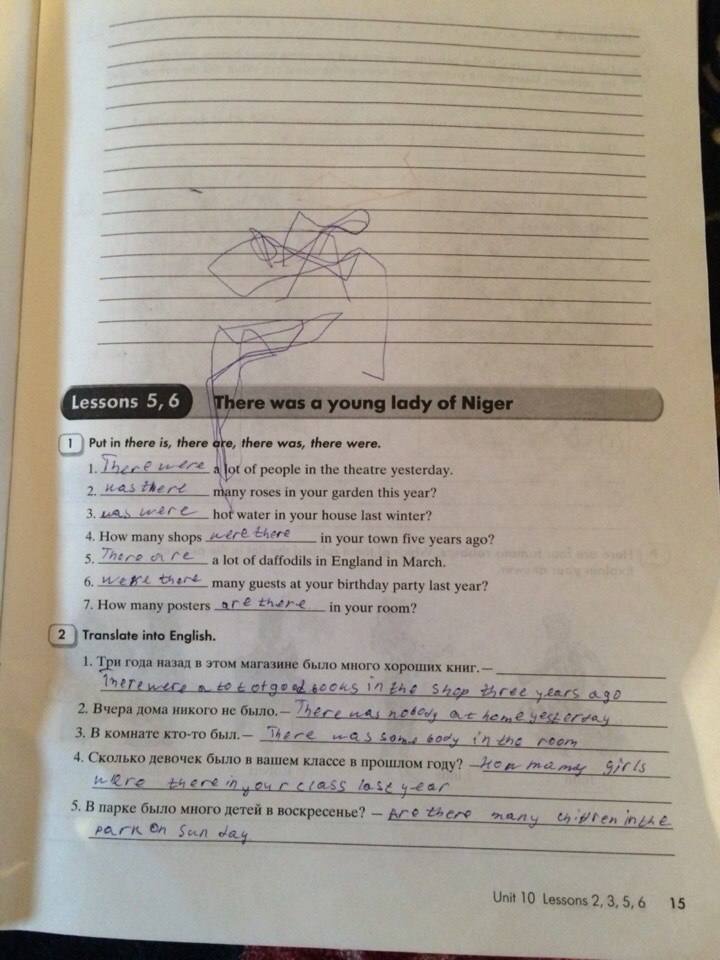 Lessons 5, 6 There was a young lady of Niger
1 Put in there is, there are, there was, there were.
1. There were a lot of people in the theatre yesterday.
2. was there many roses in your garden this year?
3. was were hot water in your house last winter?
4. How many shops were there in your town five years ago?
5. There are a lot of daffodils in England in March.
6. were there many guests at your birthday party last year?
7. How many posters are there in your room?
2 Translate into English.
1. Три года назад в этом магазине было много хороших книг. –
There were a lot of good books in the shop three years ago
2. Вчера дома никого не было. – There was nobody at home yesterday
3. В комнате кто-то был. – There was some body in the room
4. Сколько девочек было в вашем классе в прошлом году? – How many girls
were there in your class last year
5. В парке было много детей в воскресенье? – Are there many children in the
park on Sun day
Unit 10 Lessons 2, 3, 5, 6 15